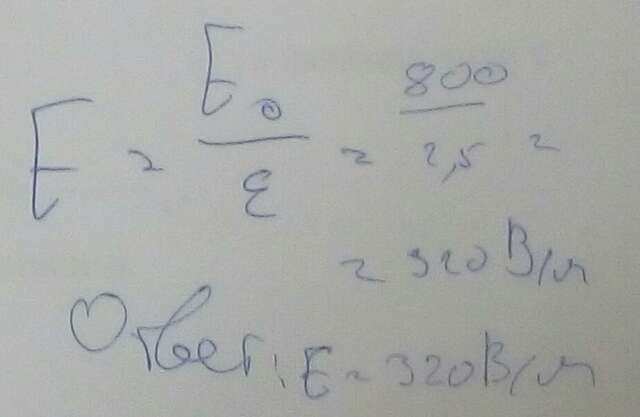 E = E₀/ε = 800/2,5 =
= 320 В/м
Ответ: E = 320 В/м